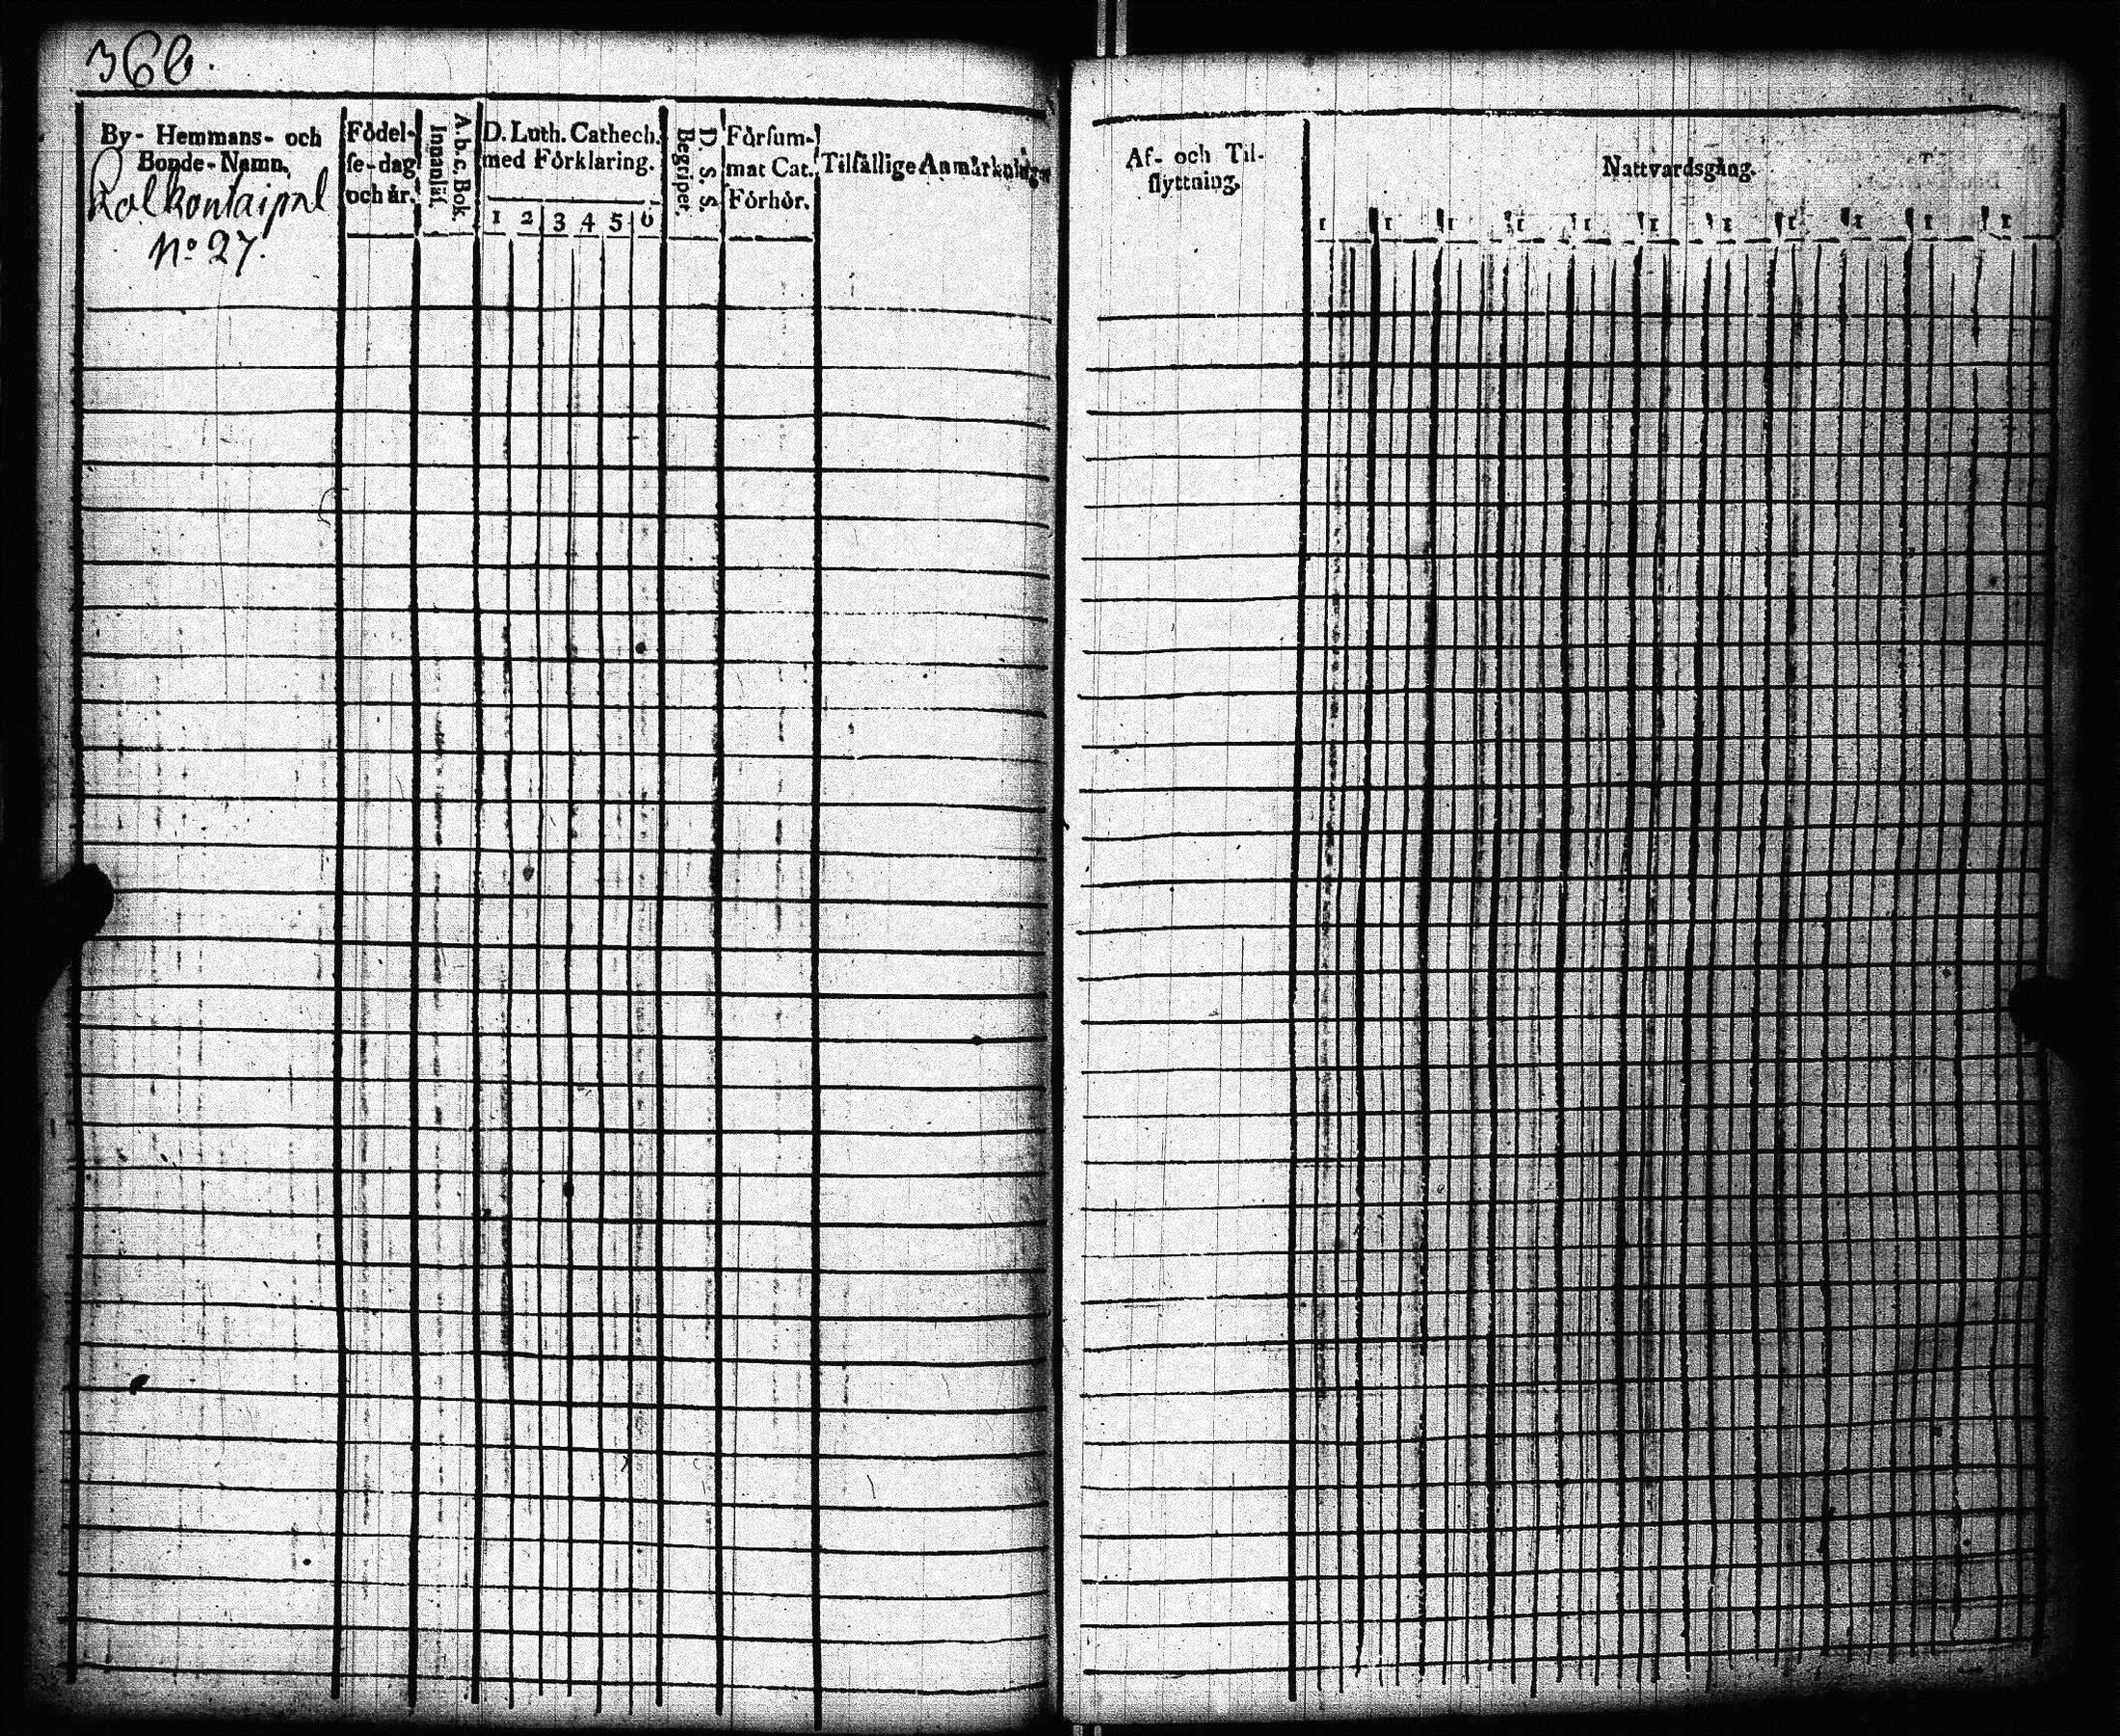 366.
By- Hemmans- och
Bonde-Namn.
Kolkontaipal
No 27.
Födel-
se-dag
och år.
Innanläs.
A.b.c. Bok.
D. Luth. Cathech.
med Förklaring.
1 2 3 4 5 6
Begriper.
D. S. S.
Försum-
mat Cat.
Förhör.
Tilfällige Anmärkningar
Af- och Til-
flyttning.
Nattvardsgång.
1 1 1 1 1 1 1 1 1 1 1